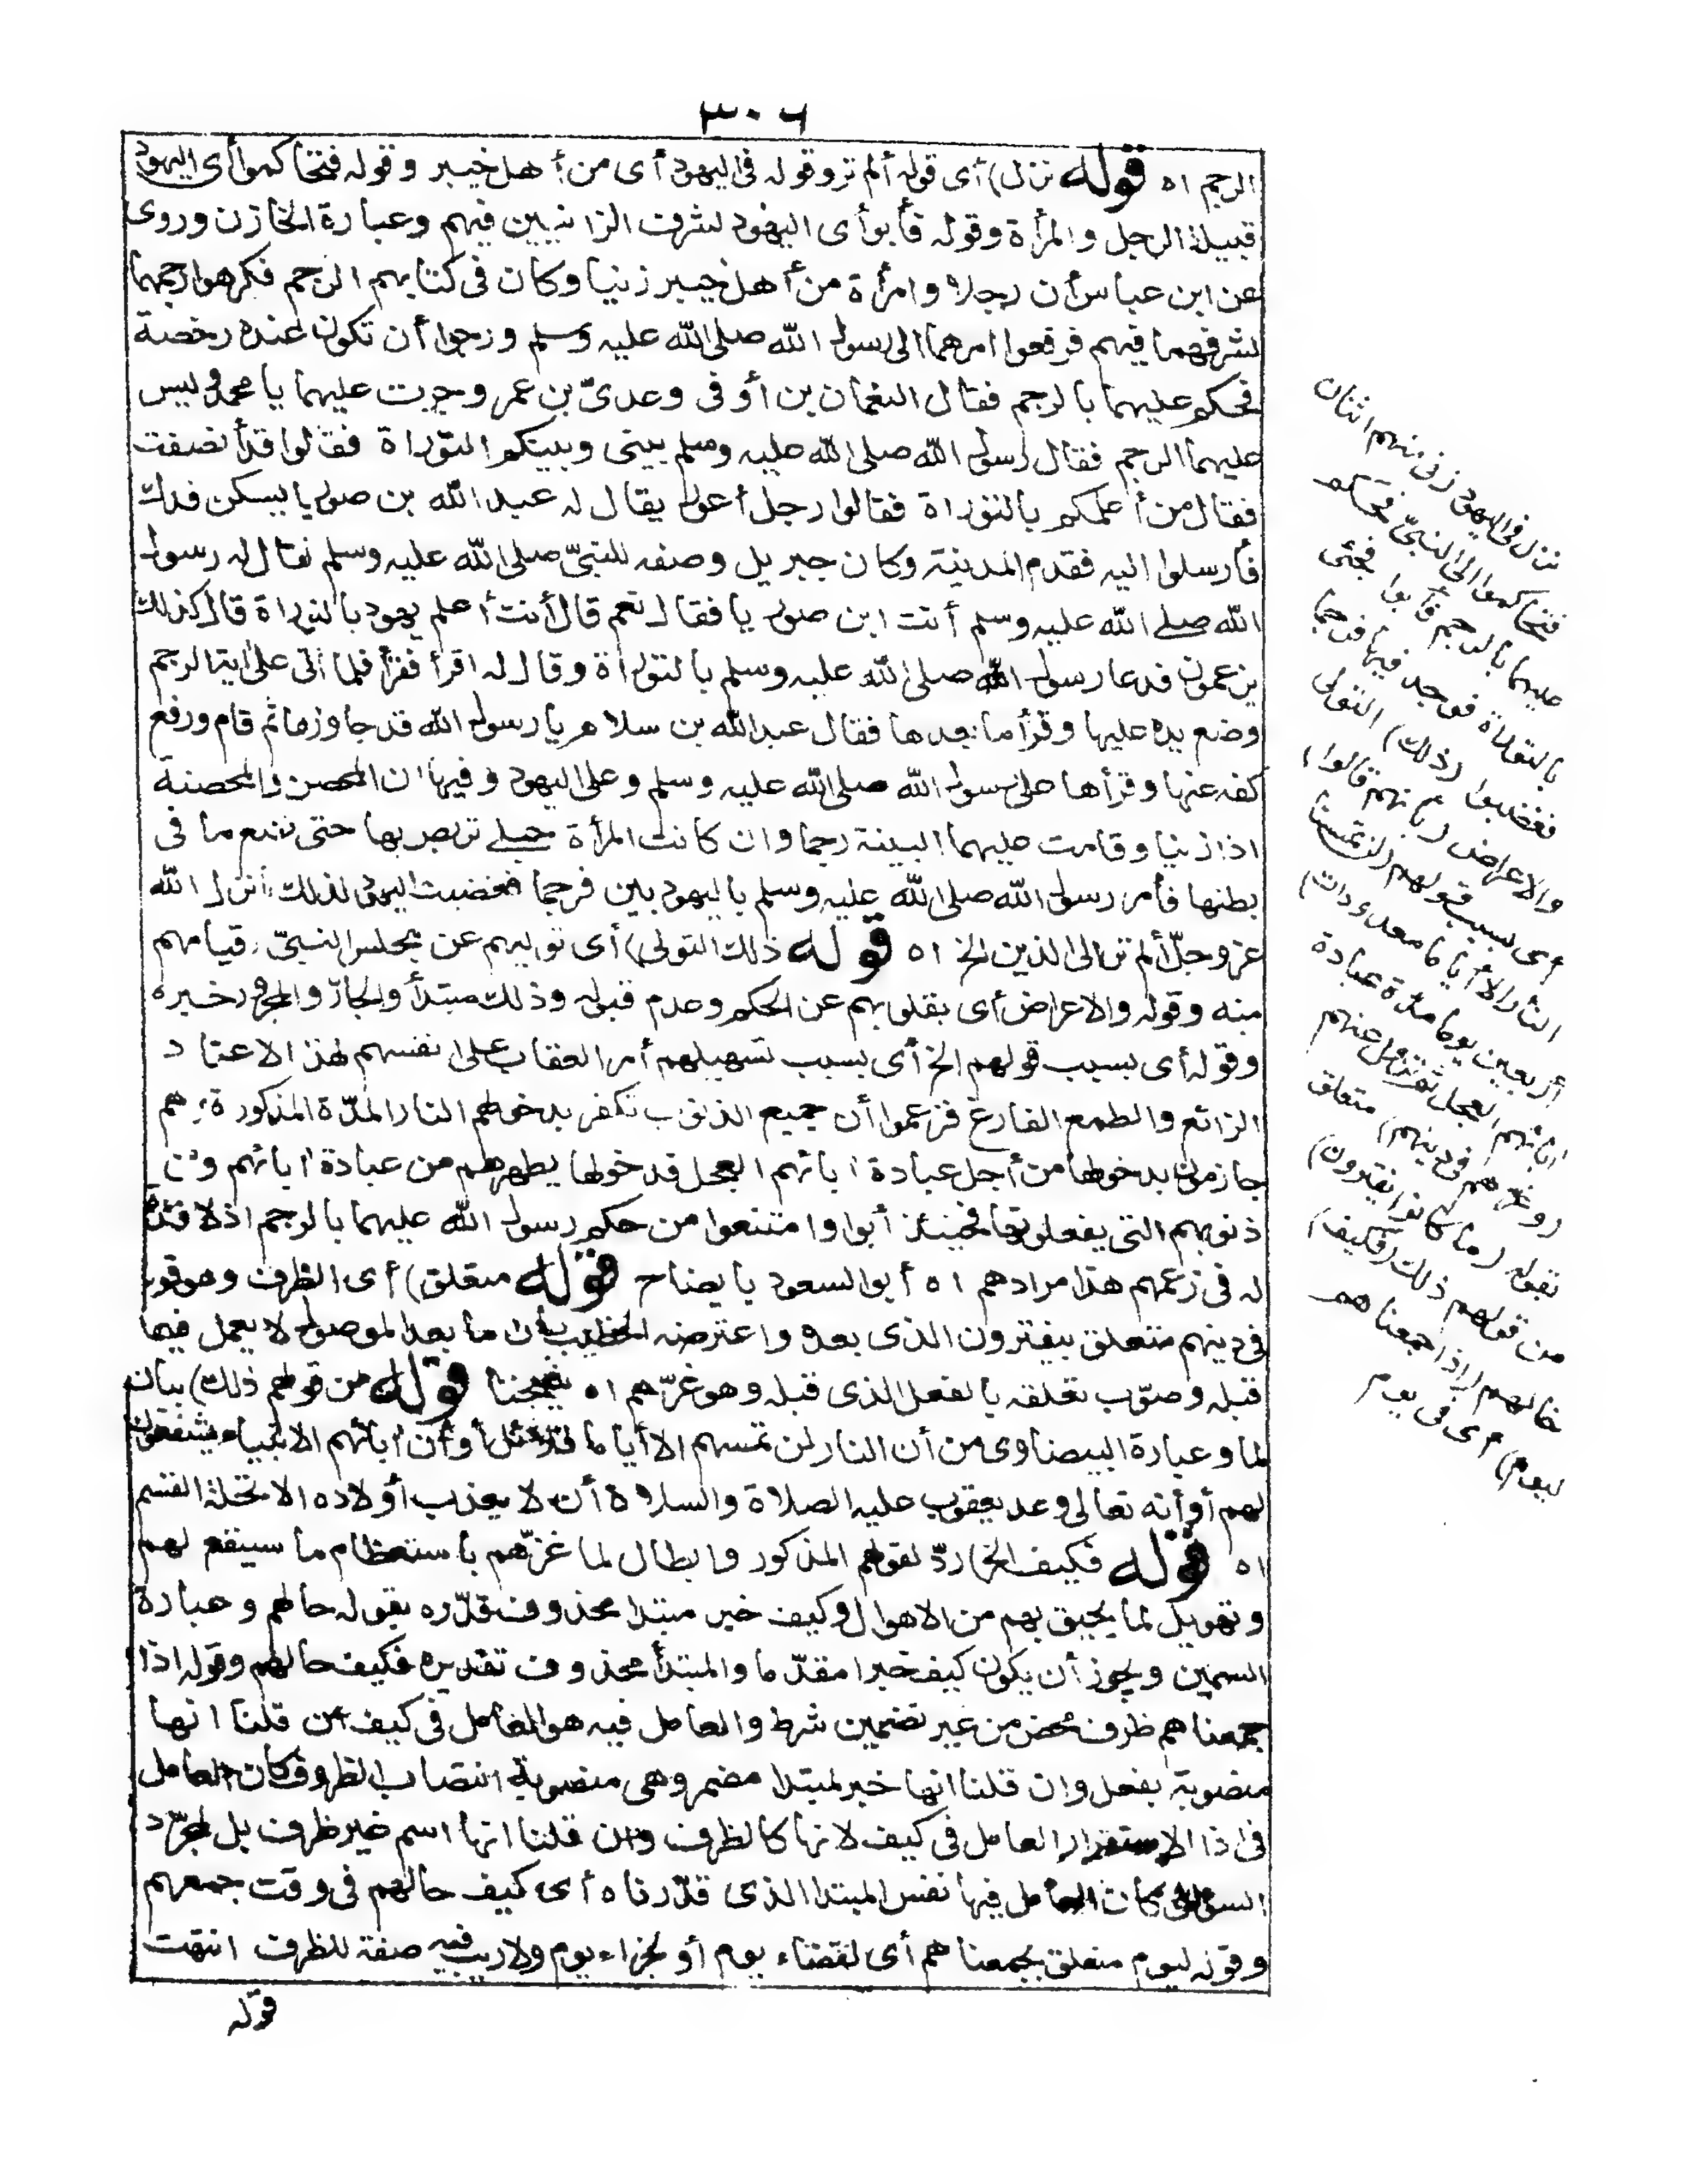 ٣٠٦
الرجم اه قوله نزل) أى قوله ألم تر وقوله فى اليهود أى من أهل خيبر وقوله فتحاكموا أى اليهود
قبيلة الرجل والمرأة وقوله فأبوا أى اليهود لشرف الزانيين فيهم وعبارة الخازن وروى
عن ابن عباس أن رجلا وامرأة من أهل خيبر زنيا وكان فى كتابهم الرجم فكرهوا رجمهما
لشرفهما فيهم فرفعوا امرهما الى رسول الله صلى الله عليه وسلم ورجوا أن تكون عنده رخصة
فحكم عليهما بالرجم فقال النعمان بن أوفى وعدىّ بن عمر وجرت عليهما يا محمد وليس
عليهما الرجم فقال رسول الله صلى الله عليه وسلم بينى وبينكم التوراة فقالوا قد أنصفت
فقال من أعلمكم بالتوراة فقالوا رجل أعور يقال له عبد الله بن صوريا يسكن فدك
فأرسلوا اليه فقدم المدينة وكان جبريل وصفه للنبىّ صلى الله عليه وسلم فقال له رسول
الله صلى الله عليه وسلم أنت ابن صوريا فقال نعم قال أنت أعلم يهود بالتوراة قال كذلك
يزعمون فدعا رسول الله صلى الله عليه وسلم بالتوراة وقال له اقرأ فقرأ فلما أتى على اية الرجم
وضع يده عليها وقرأ ما بعدها فقال عبد الله بن سلام يا رسول الله قد جاوزها ثم قام ورفع
كفه عنها وقرأها على رسول الله صلى الله عليه وسلم وعلى اليهود وفيها ان المحصن والمحصنة
اذا زنيا وقامت عليهما البينة رجما وان كانت المرأة حبلى تربص بها حتى تضع ما فى
بطنها فأمر رسول الله صلى الله عليه وسلم باليهوديين فرجما فغضبت اليهود لذلك أنزل الله
عز وجلّ ألم تر الى الذين الخ اه قوله ذلك التولى) أى توليهم عن مجلس النبىّ وقيامهم
منه وقوله والاعراض أى بقلوبهم عن الحكم وعدم قبوله وذلك مبتدأ والجارّ والمجرور خبره
وقوله أى بسبب قولهم الخ أى بسبب تسهيلهم أمر العقاب على انفسهم لهذا الاعتقاد
الزائع والطمع الفارغ فزعموا أن جميع الذنوب تكفر بدخولهم النار المدّة المذكورة وهم
جازمون بدخولها من أجل عبادة ابائهم العجل فدخولها يطهرهم من عبادة ابائهم ومن
ذنوبهم التى يفعلونها فحينئذ أبوا وامتنعوا من حكم رسول الله عليهما بالرجم اذ لا فائدة
له فى زعمهم هذا مرادهم اه أبو السعود بايضاح قوله متعلق) أى الظرف وهو قوله
فى دينهم متعلق بيفترون الذى بعده واعترضه الخطيب بأن ما بعد الموصول لا يعمل فيما
قبله وصوّب تعلقه بالفعل الذى قبله وهو غرّهم اه شيخنا قوله من قولهم ذلك) بيان
لما وعبارة البيضاوى من أن النار لن تمسهم الا أياما قلائل أو أن ابائهم الانبياء يشفعون
لهم أو أنه تعالى وعد يعقوب عليه الصلاة والسلام أن لا يعذب أولاده الا تحلة القسم
اه قوله فكيف الخ) ردّ لقولهم المذكور وابطال لما غرّهم باستعظام ما سيقع لهم
وتهويل لما يحيق بهم من الاهوال وكيف خبر مبتدا محذوف قدّره بقوله حالهم وعبارة
السمين ويجوز أن يكون كيف خبرا مقدّما والمبتدأ محذوف تقديره فكيف حالهم وقوله اذا
جمعناهم ظرف محض من غير تضمين شرط والعامل فيه هو العامل فى كيف ان قلنا انها
منصوبة بفعل وان قلنا انها خبر لمبتدا مضمر وهى منصوبة انتصاب الظروف كان العامل
فى اذا الاستقرار العامل فى كيف لانها كالظرف وان قلنا انها اسم غير ظرف بل لمجرّد
السؤال كان العامل فيها نفس المبتدا الذى قدّرناه أى كيف حالهم فى وقت جمعهم
وقوله ليوم متعلق بجمعناهم أى لقضاء يوم أو لجزاء يوم ولا ريب فيه صفة للظرف انتهت
قوله
نزل فى اليهود زنى منهم اثنان
فتحاكموا الى النبىّ فحكم
عليهما بالرجم فأبوا فجئ
بالتوراة فوجد فيها فرجما
فغضبوا (ذلك) التولى
والاعراض (بأنهم قالوا)
أى بسبب قولهم (لن تمسنا
النار الا أياما معدودات)
أربعين يوما مدّة عبادة
ابائهم العجل ثم تزول عنهم
(وغرّهم فى دينهم) متعلق
بقوله (ما كانوا يفترون)
من قولهم ذلك (فكيف)
حالهم (اذا جمعناهم
ليوم) أى فى يوم